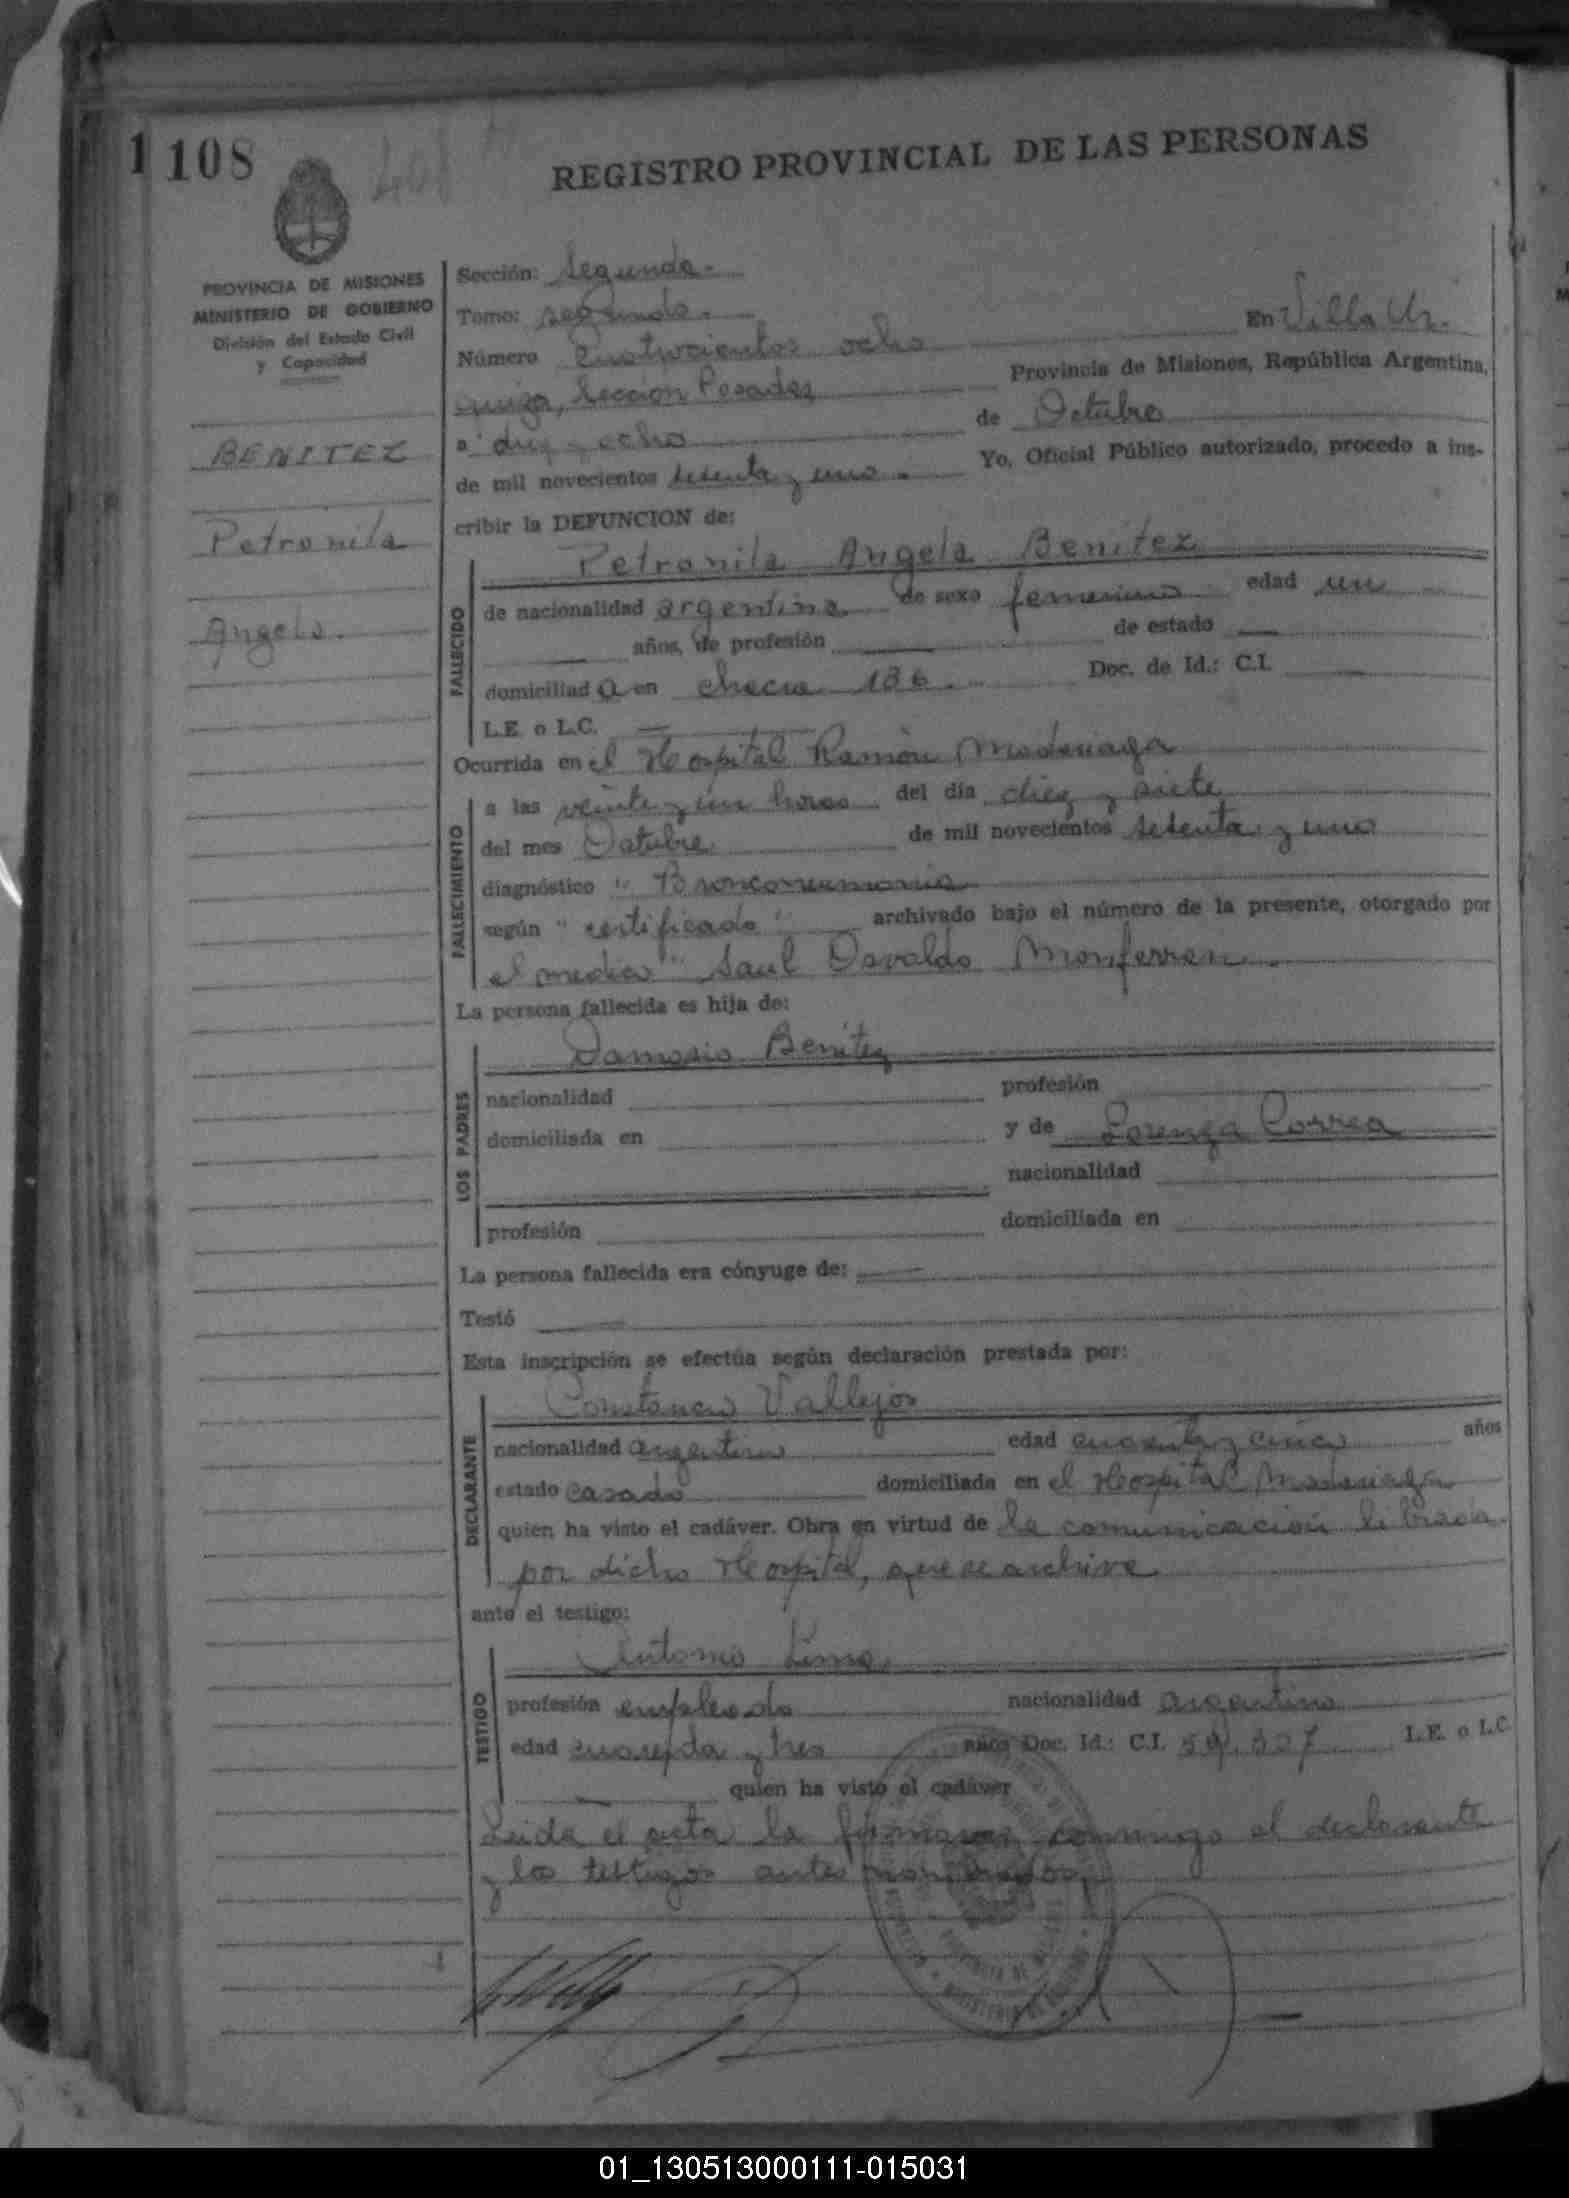 1 108
408
REGISTRO PROVINCIAL DE LAS PERSONAS
PROVINCIA DE MISIONES
MINISTERIO DE GOBIERNO
División del Estado Civil
y Capacidad
BENITEZ
Petronila
Angela.
Sección: Segunda.
Tomo: segundo.
Número Cuatrocientos ocho En Villa Ur-
quiza, Sección Posadas Provincia de Misiones, República Argentina,
a diez y ocho de Octubre
de mil novecientos setenta y uno. Yo, Oficial Público autorizado, procedo a ins-
cribir la DEFUNCION de:
FALLECIDO
Petronila Angela Benitez
de nacionalidad argentina de sexo femenino edad un
años, de profesión de estado
domiciliad a en chacra 136. Doc. de Id.: C.I.
L.E. o L.C.
Ocurrida en el Hospital Ramón Madariaga
FALLECIMIENTO
a las veinte y un horas del día diez y siete
del mes Octubre de mil novecientos setenta y uno
diagnóstico " Bronconeumonia
según "certificado" archivado bajo el número de la presente, otorgado por
el medico" Saul Osvaldo Monferran.
La persona fallecida es hija de:
LOS PADRES
Damasio Benitez
nacionalidad profesión
domiciliada en y de Lorenza Correa
nacionalidad
profesión domiciliada en
La persona fallecida era cónyuge de:
Testó
Esta inscripción se efectúa según declaración prestada por:
DECLARANTE
Constancio Vallejos
nacionalidad argentino edad cuarenta y cinco años
estado casado domiciliada en el Hospital Madariaga
quien ha visto el cadáver. Obra en virtud de la comunicación librada
por dicho Hospital, que se archiva
ante el testigo:
TESTIGO
Antonio Lima
profesión empleado nacionalidad argentino
edad cuarenta y tres años Doc. Id.: C.I. 59.507 L.E. o L.C.
quien ha visto el cadáver
Leida el acta la firman conmigo el declarante
y los testigos antes nombrados.
01_130513000111-015031